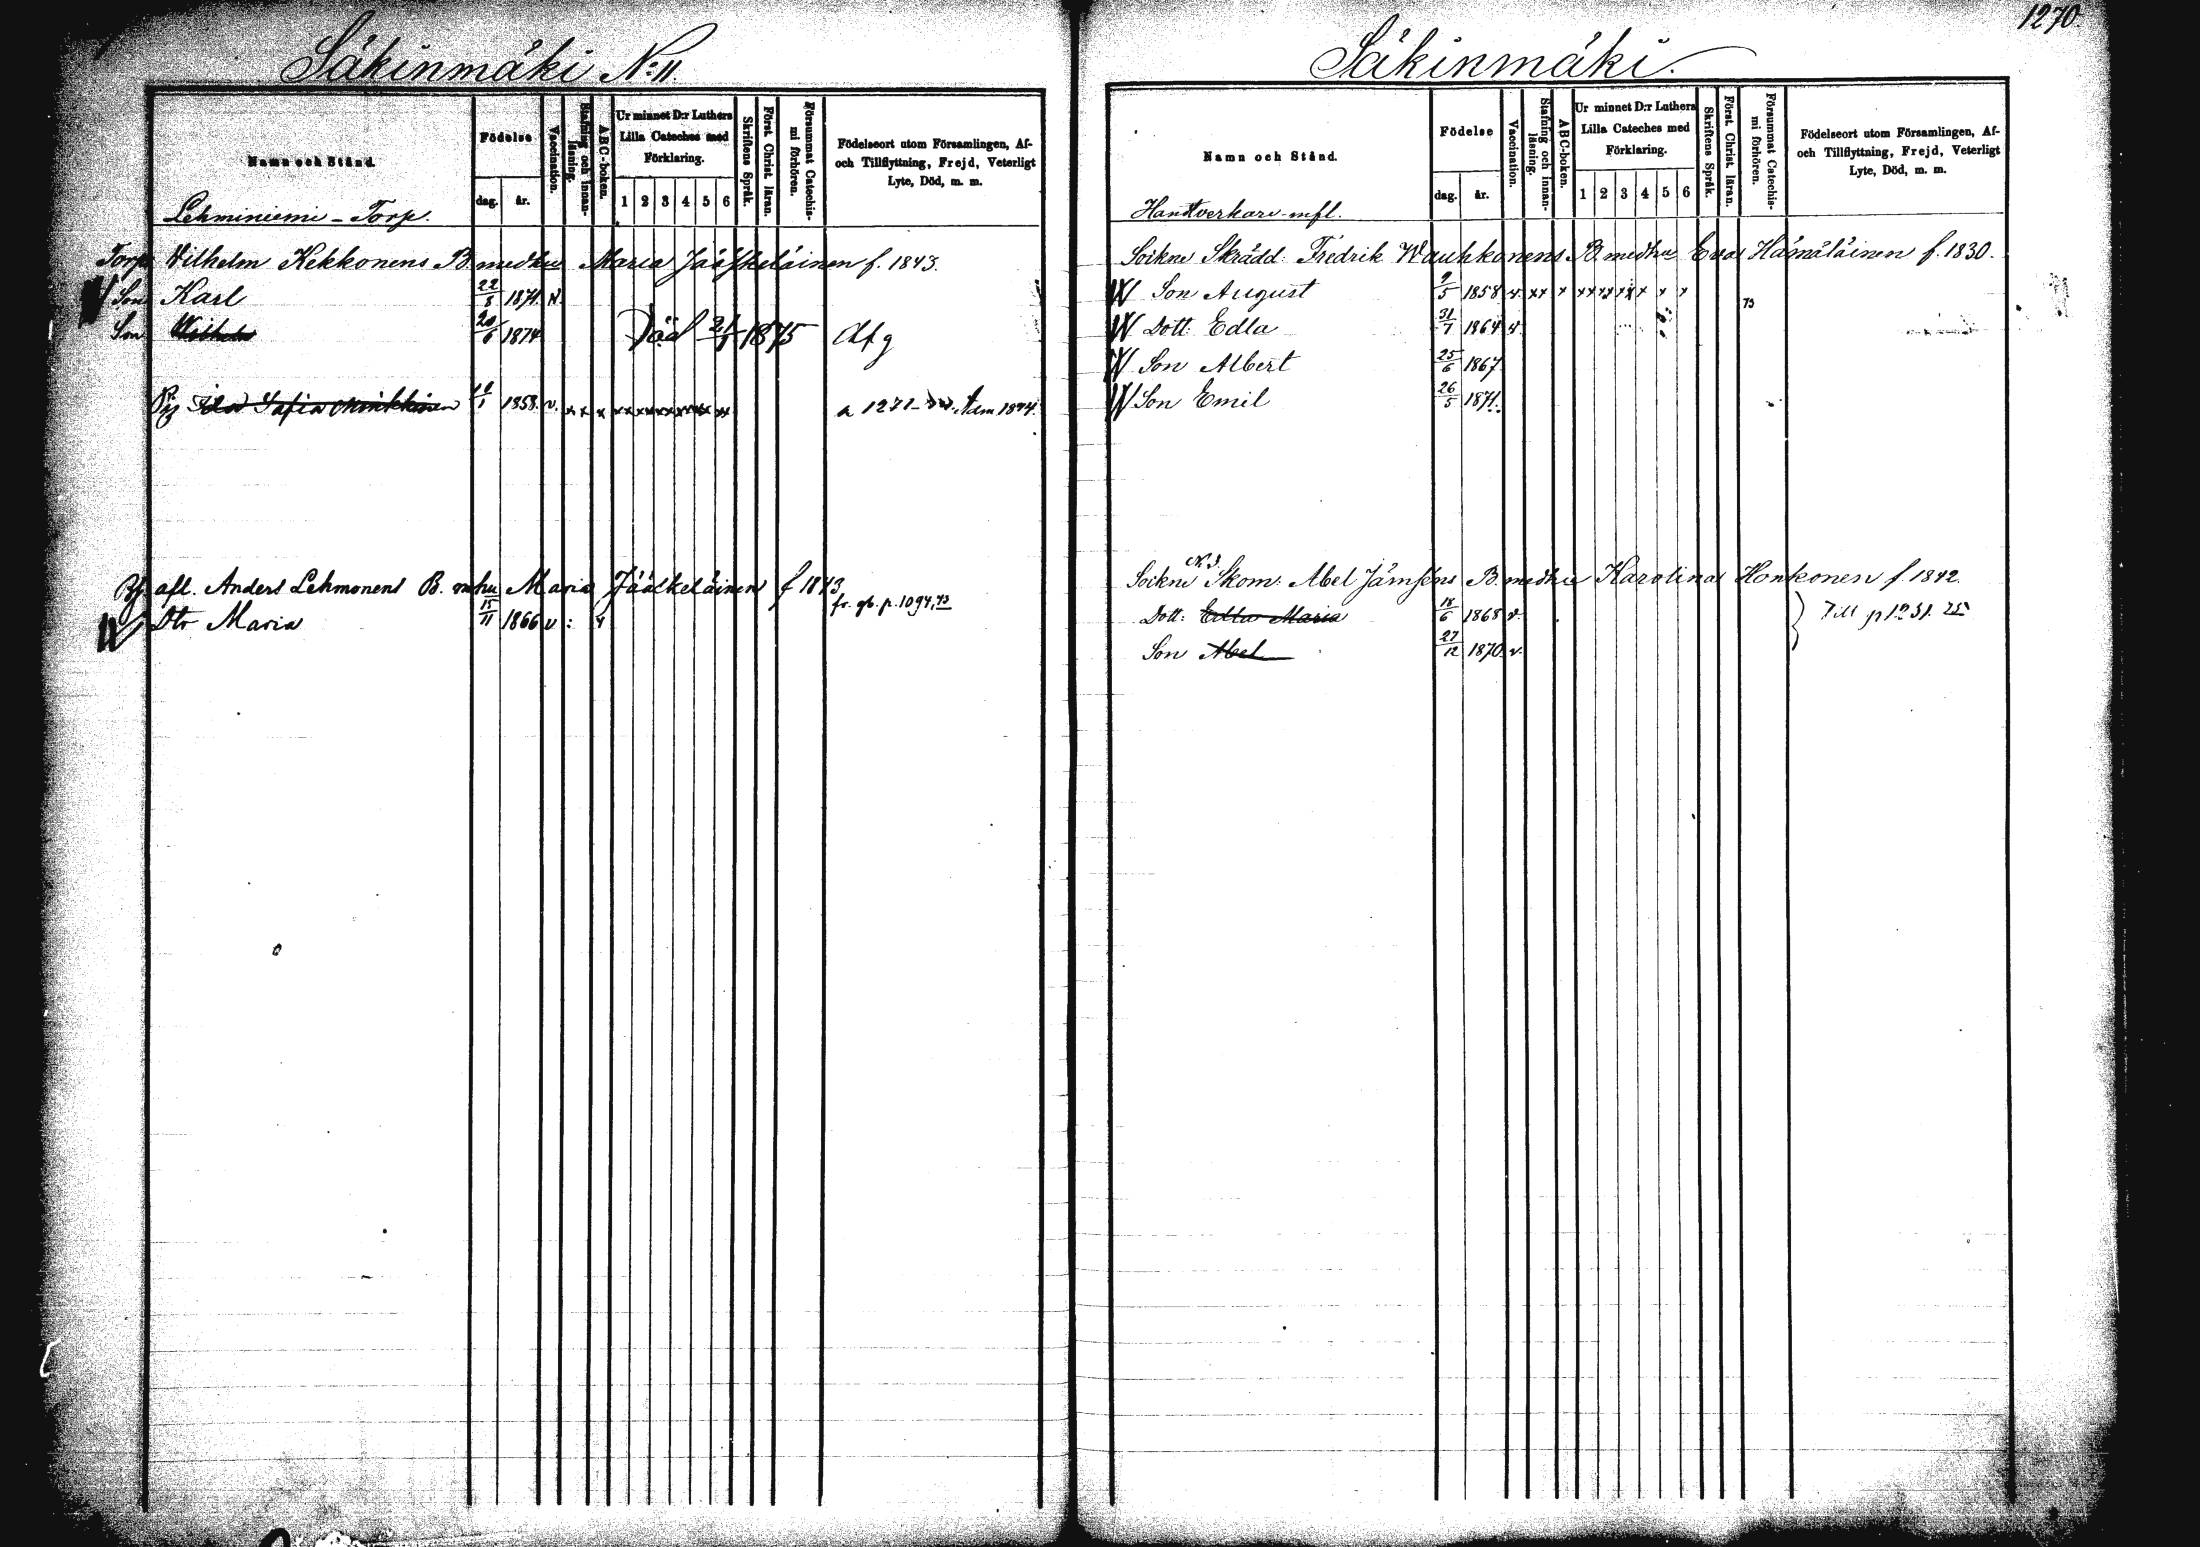 1270.
Säkinmäki No 11.
Namn och Stånd.
Födelse
dag.
år.
Vaccination.
Stafning och innanläsning.
ABC-boken.
Ur minnet D:r Luthers Lilla Cateches med Förklaring.
1 2 3 4 5 6
Skriftens Språk.
Först. Christ. läran.
Försummat Catechismi förhören.
Födelseort utom Församlingen, Af- och Tillflyttning, Frejd, Veterligt Lyte, Död, m. m.
Lehminiemi - Torp.
Torp. Wilhelm Kekkonens B. medhu Maria Jääskeläinen f. 1843.
Son Karl 22/8 1871. v.
Son Wilhelm 20/6 1874 Död 1875
Sofia 1858. v. x x x a 1271 1874.
afl. Anders Lehmonens B. mhu Maria Jääskeläinen f 1843
Dtr Maria 15/11 1866 v fr. gb. p. 1094, 73
Säkinmäki.
Namn och Stånd.
Födelse
dag.
år.
Vaccination.
Stafning och innanläsning.
ABC-boken.
Ur minnet D:r Luthers Lilla Cateches med Förklaring.
1 2 3 4 5 6
Skriftens Språk.
Först. Christ. läran.
Försummat Catechismi förhören.
Födelseort utom Församlingen, Af- och Tillflyttning, Frejd, Veterligt Lyte, Död, m. m.
Handtverkare mfl.
Soikne Skrädd: Fredrik Wauhkonens B. medhu Eva Hämäläinen f. 1830.
Son August 9/5 1858 v. xx x xx xx xx x x x 73
Dott: Edla 31/7 1864 v.
Son Albert 25/6 1867.
Son Emil 26/5 1871.
N. 3.
Soikne Skom: Abel Jämséns B. medhu Karolina Honkonen f. 1842.
Dott: Edla Maria 18/6 1868 v. Till p 1231. 75
Son Abel 27/12 1870. v.